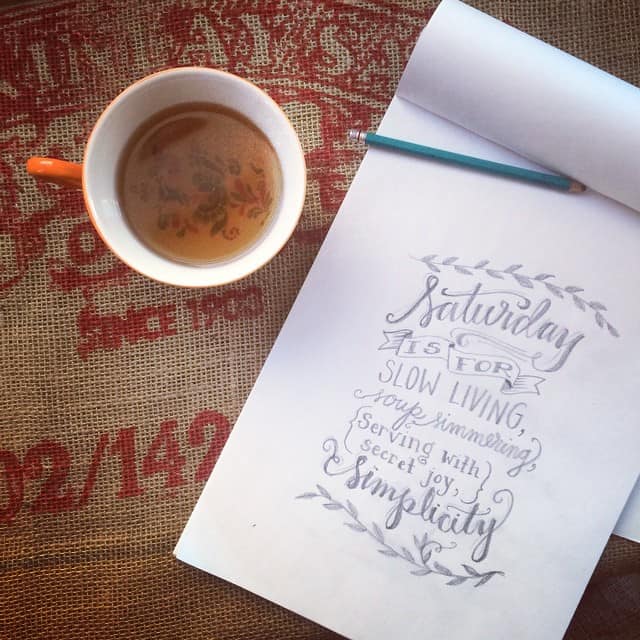 SINCE 1903
02/142
Saturday
IS FOR
SLOW LIVING,
soup simmering,
Serving with
secret joy,
Simplicity